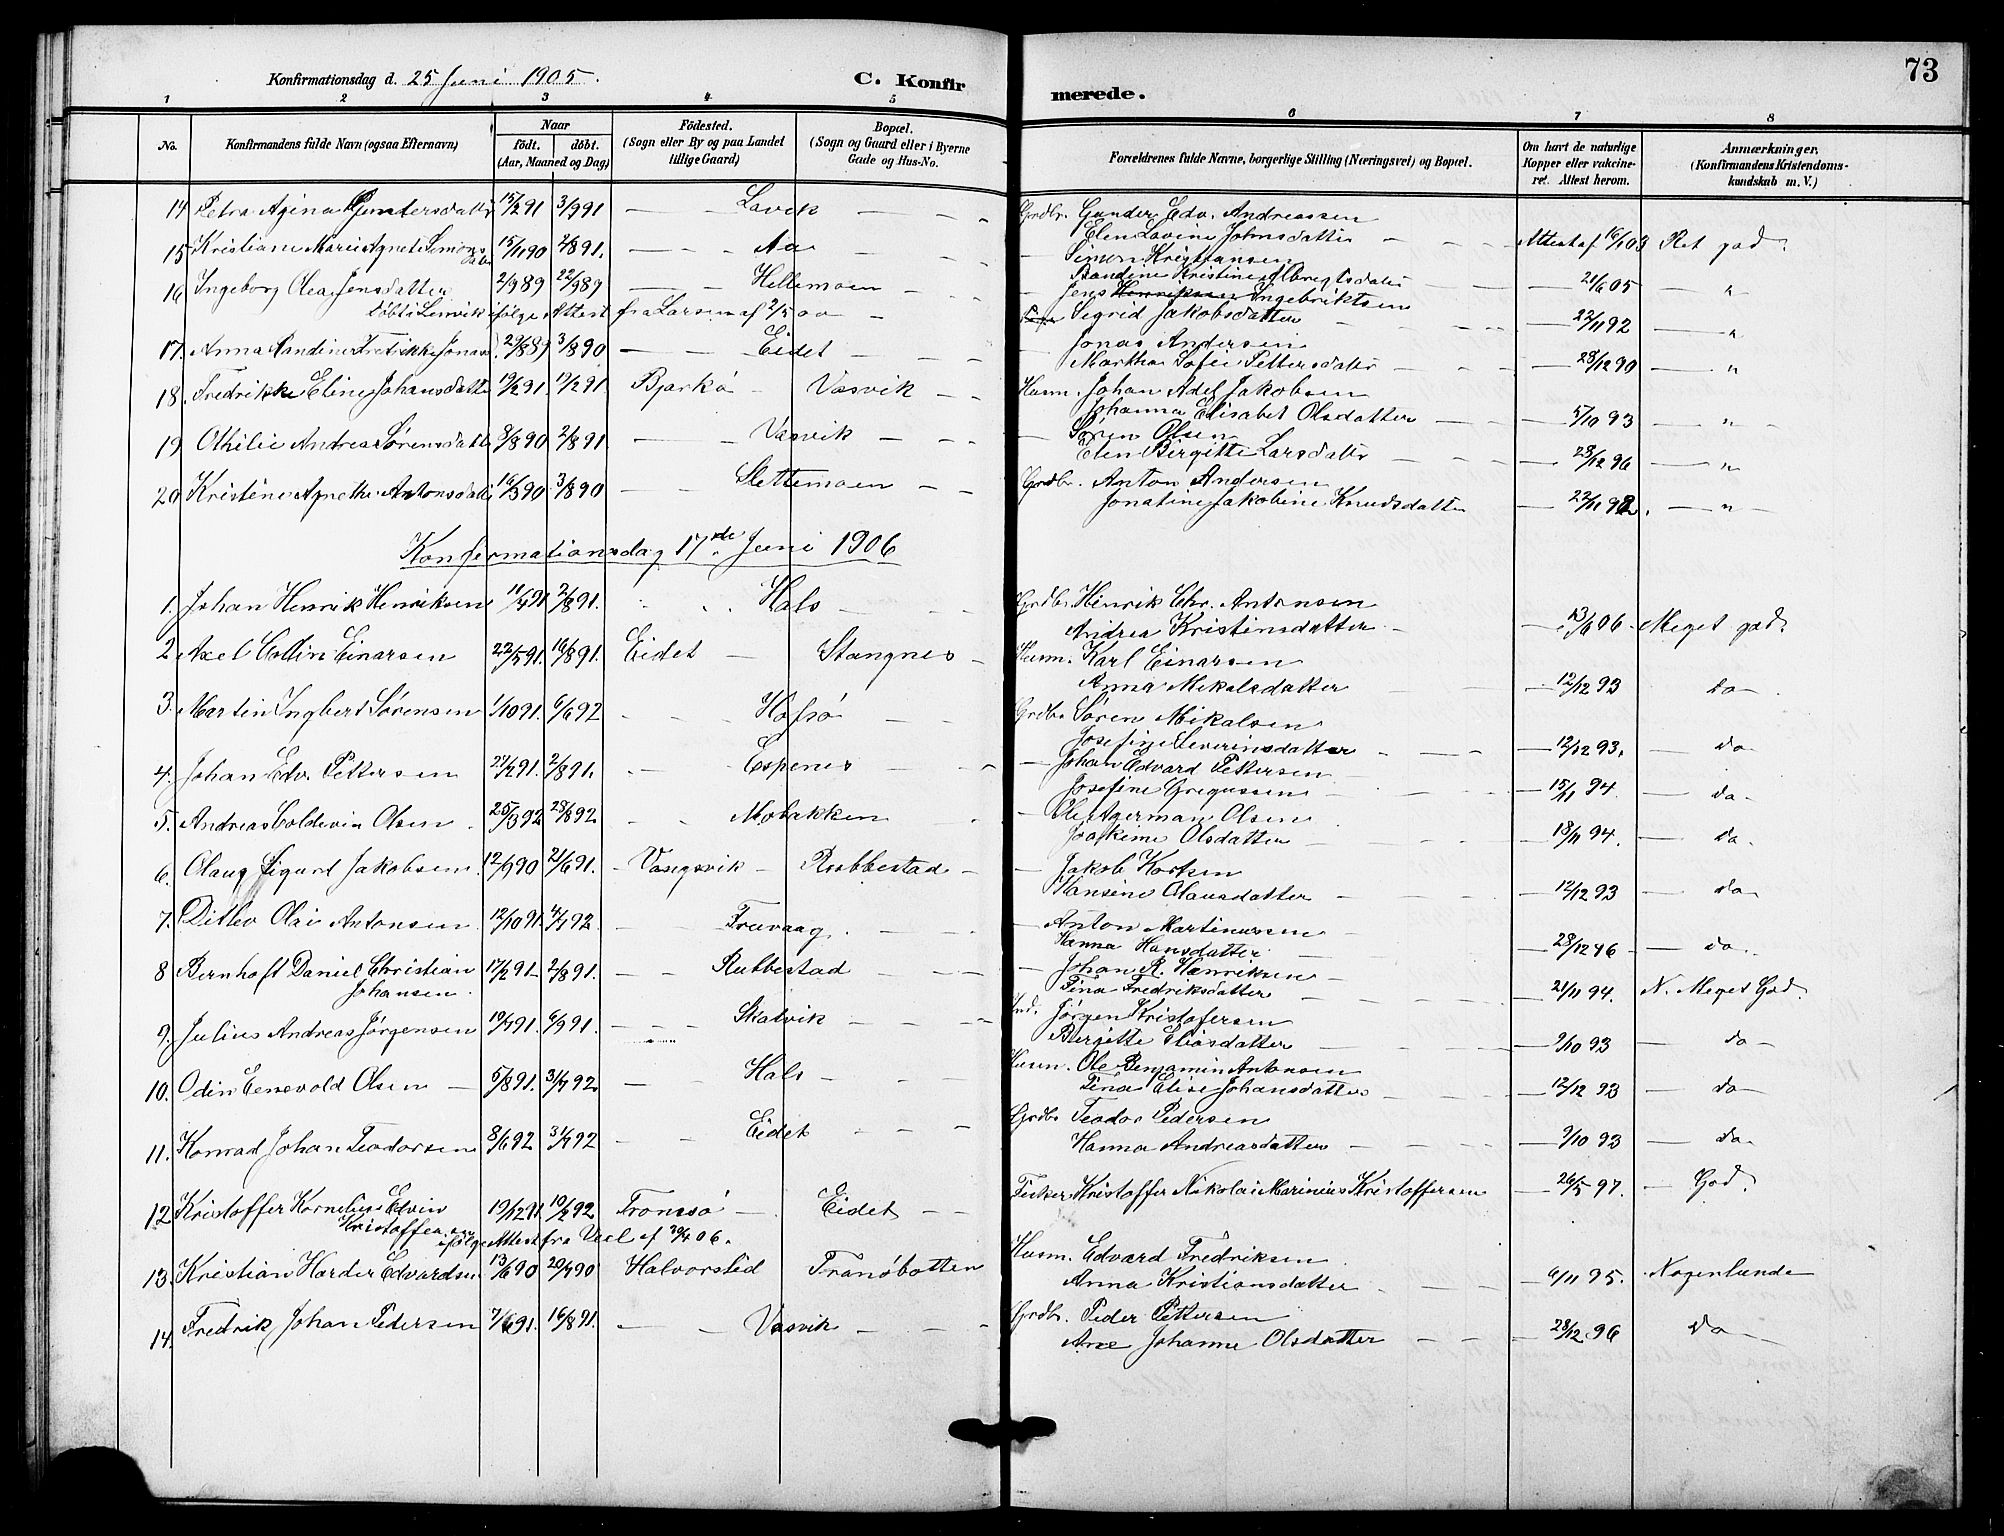 73
Konfirmationsdag d. 25 Juni 1905.
C. Konfir
merede.
1 2 3 4 5 6 7 8
No.
Konfirmandens fulde Navn (ogsaa Efternavn)
Naar
födt. döbt.
(Aar, Maaned og Dag)
Födested.
(Sogn eller By og paa Landet
tillige Gaard)
Bopæl.
(Sogn og Gaard eller i Byerne
Gade og Hus-No.
Forældrenes fulde Navne, borgerlige Stilling (Næringsvei) og Bopæl.
Om havt de naturlige
Kopper eller vakcine-
ret. Attest herom.
Anmærkninger.
(Konfirmandens Kristendoms-
kundskab m. V.)
14 Petra Agina Gundersdattr 15/2 91 3/9 91 — — Lavik — — Grdbr. Gunder Edv. Andreassen
Elen Lovine Johnsdatter — — Attest af 16/1 03 Ret god.
15 Kristiane Marie Agnete Simons 15/11 90 2/8 91. — — Aa — — Simon Kristiansen
datr
Kristine Albregtsdatr — — 21/6 05 — "
16 Ingeborg Olea Jensdatter 2/9 89 22/9 89 — — Hellemoen — Jens Ingebriktsen
döbt i Lenvik ifölge Attest fra Larsen af 2/5 00 — Sigrid Jakobsdatter — 22/11 92 — "
17. Anna Fredrikke Jonasd. 29/8 89 3/8 90 — — Eidet — — Jonas Andersen
Martha Sofie Pettersdatr — 28/12 90 — "
18. Fredrikke Eline Johansdatter 19/2 91 Bjarkö — Vasvik — — Husm. Johan Adolf Jakobsen
Johanna Elisabet Olsdatter — — 5/10 93 — "
19 Othilie Andrea Sørensdatt 8/8 90 2/8 91. — — Vasvik — — Søren Olsen
Elen Birgitte Larsdatr — — 28/12 96 — "
20 Kristine Agnethe Antonsdatt 16/3 90 3/8 90 — — Slettemoen — — Grdbr. Anton Andersen
Jonatine Jakobine Knudsdatter — 22/11 92. — "
Konfirmationsdag 17de Juni 1906
1. Johan Henrik Henriksen 11/4 91 2/8 91. Hals — — Grdbr Hinrik Chr. Antonsen
Andrea Kristinsdatter — 13/6 06 — Meget god.
2 Axel Collin Einarsen 22/5 91. 16/8 91. Eidet — Stangnes — Husm. Karl Einarsen
Anna Mikalsdatter — 12/12 93 do —
3. Martin Ingbert Sørensen 1/10 91. 6/6 92 — — Hofsö — — Grdbr Søren Mikalsen
Josefine Severinsdatter — — — 12/12 93. — do
4. Johan Edv. Pettersen 2/8 91. — — Espenes — — Johan Edvard Pettersen
Josefine Gregussen — — — 15/11 94 — do —
5. Andreas Coldevin Olsen 25/3 92 28/8 92 — — Mobakken — Ole Agerman Olsen
Joakime Olsdatter — — — 18/11 94. — do
6. Olaug Sigurd Jakobsen. 12/9 90 21/6 91. — Vangsvik — Rubbestad — — Jakob
Hansine Olausdatter — — — 12/12 93 — do
7. Ditlev Olai Antonsen. 12/10 91. 4/7 92 — — Truvaag. — — Anton Martinussen —
Hanna Hansdatter — — 28/12 96 — do.
8 Bernhoft Daniel Christian 17/2 91 — 2/8 91. — — Rubbestad — — Johan R. Henriksen —
Johansen.
Tina Fredriksdatter — — — 21/11 94. — N. Meget God.
9. Julius Andreas Jørgensen 19/4 91. 6/9 91. — — Skatvik — — — Ind. Jörgen Kristofersen
Birgitte Eliasdatter — — — 9/10 93 — do —
10. Odin Eensvold Olsen — 5/8 91. 31/7 92. — — Hals — — Husm. Ole Benjamin Antonsen
Tina Elise Johansdatter — — 12/12 93 — do —
11. Konrad Johan Teodorsen 8/6 92 31/7 92 — — Eidet — — — Grdbr Teodor Pedersen
Hanna Andreasdatter — — — 9/10 93 — do —
12 Kristoffer Kornelius Edvin 19/12 91 10/2 92 Tromsö — Eidet — — Fisker Kristoffer Nikolai Marinius Kristoffersen — 26/5 97. — God.
Kristoffersen
ifölge Attest fra Vael af 30/4 06.
13. Kristian Harder Edvardsen 13/6 90 20/7 90 Halvorslid Tranöbotten Husm. Edvard Fredriksen
Anna Kristiansdatter — — — 6/11 95. — Nogenlunde
14. Fredrik Johan Pedersen 7/6 91. 16/8 91. — — Vasvik — — — Grdbr. Peder Pettersen
Johanne Olsdatter — — — 28/12 96 — do —